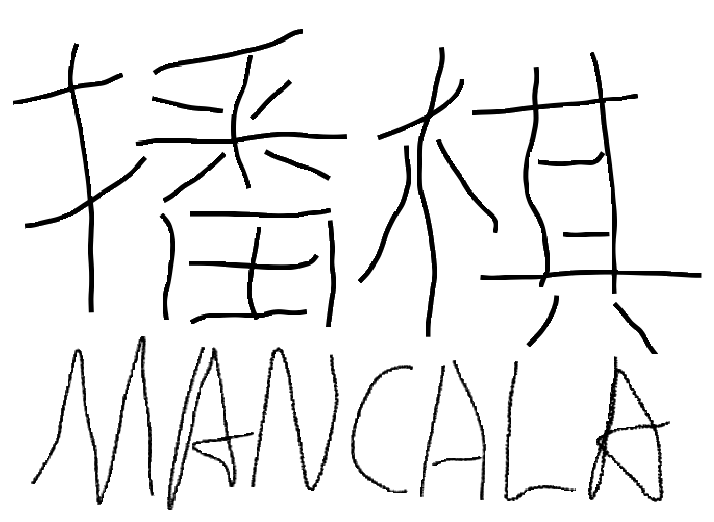 播棋
MANCALA